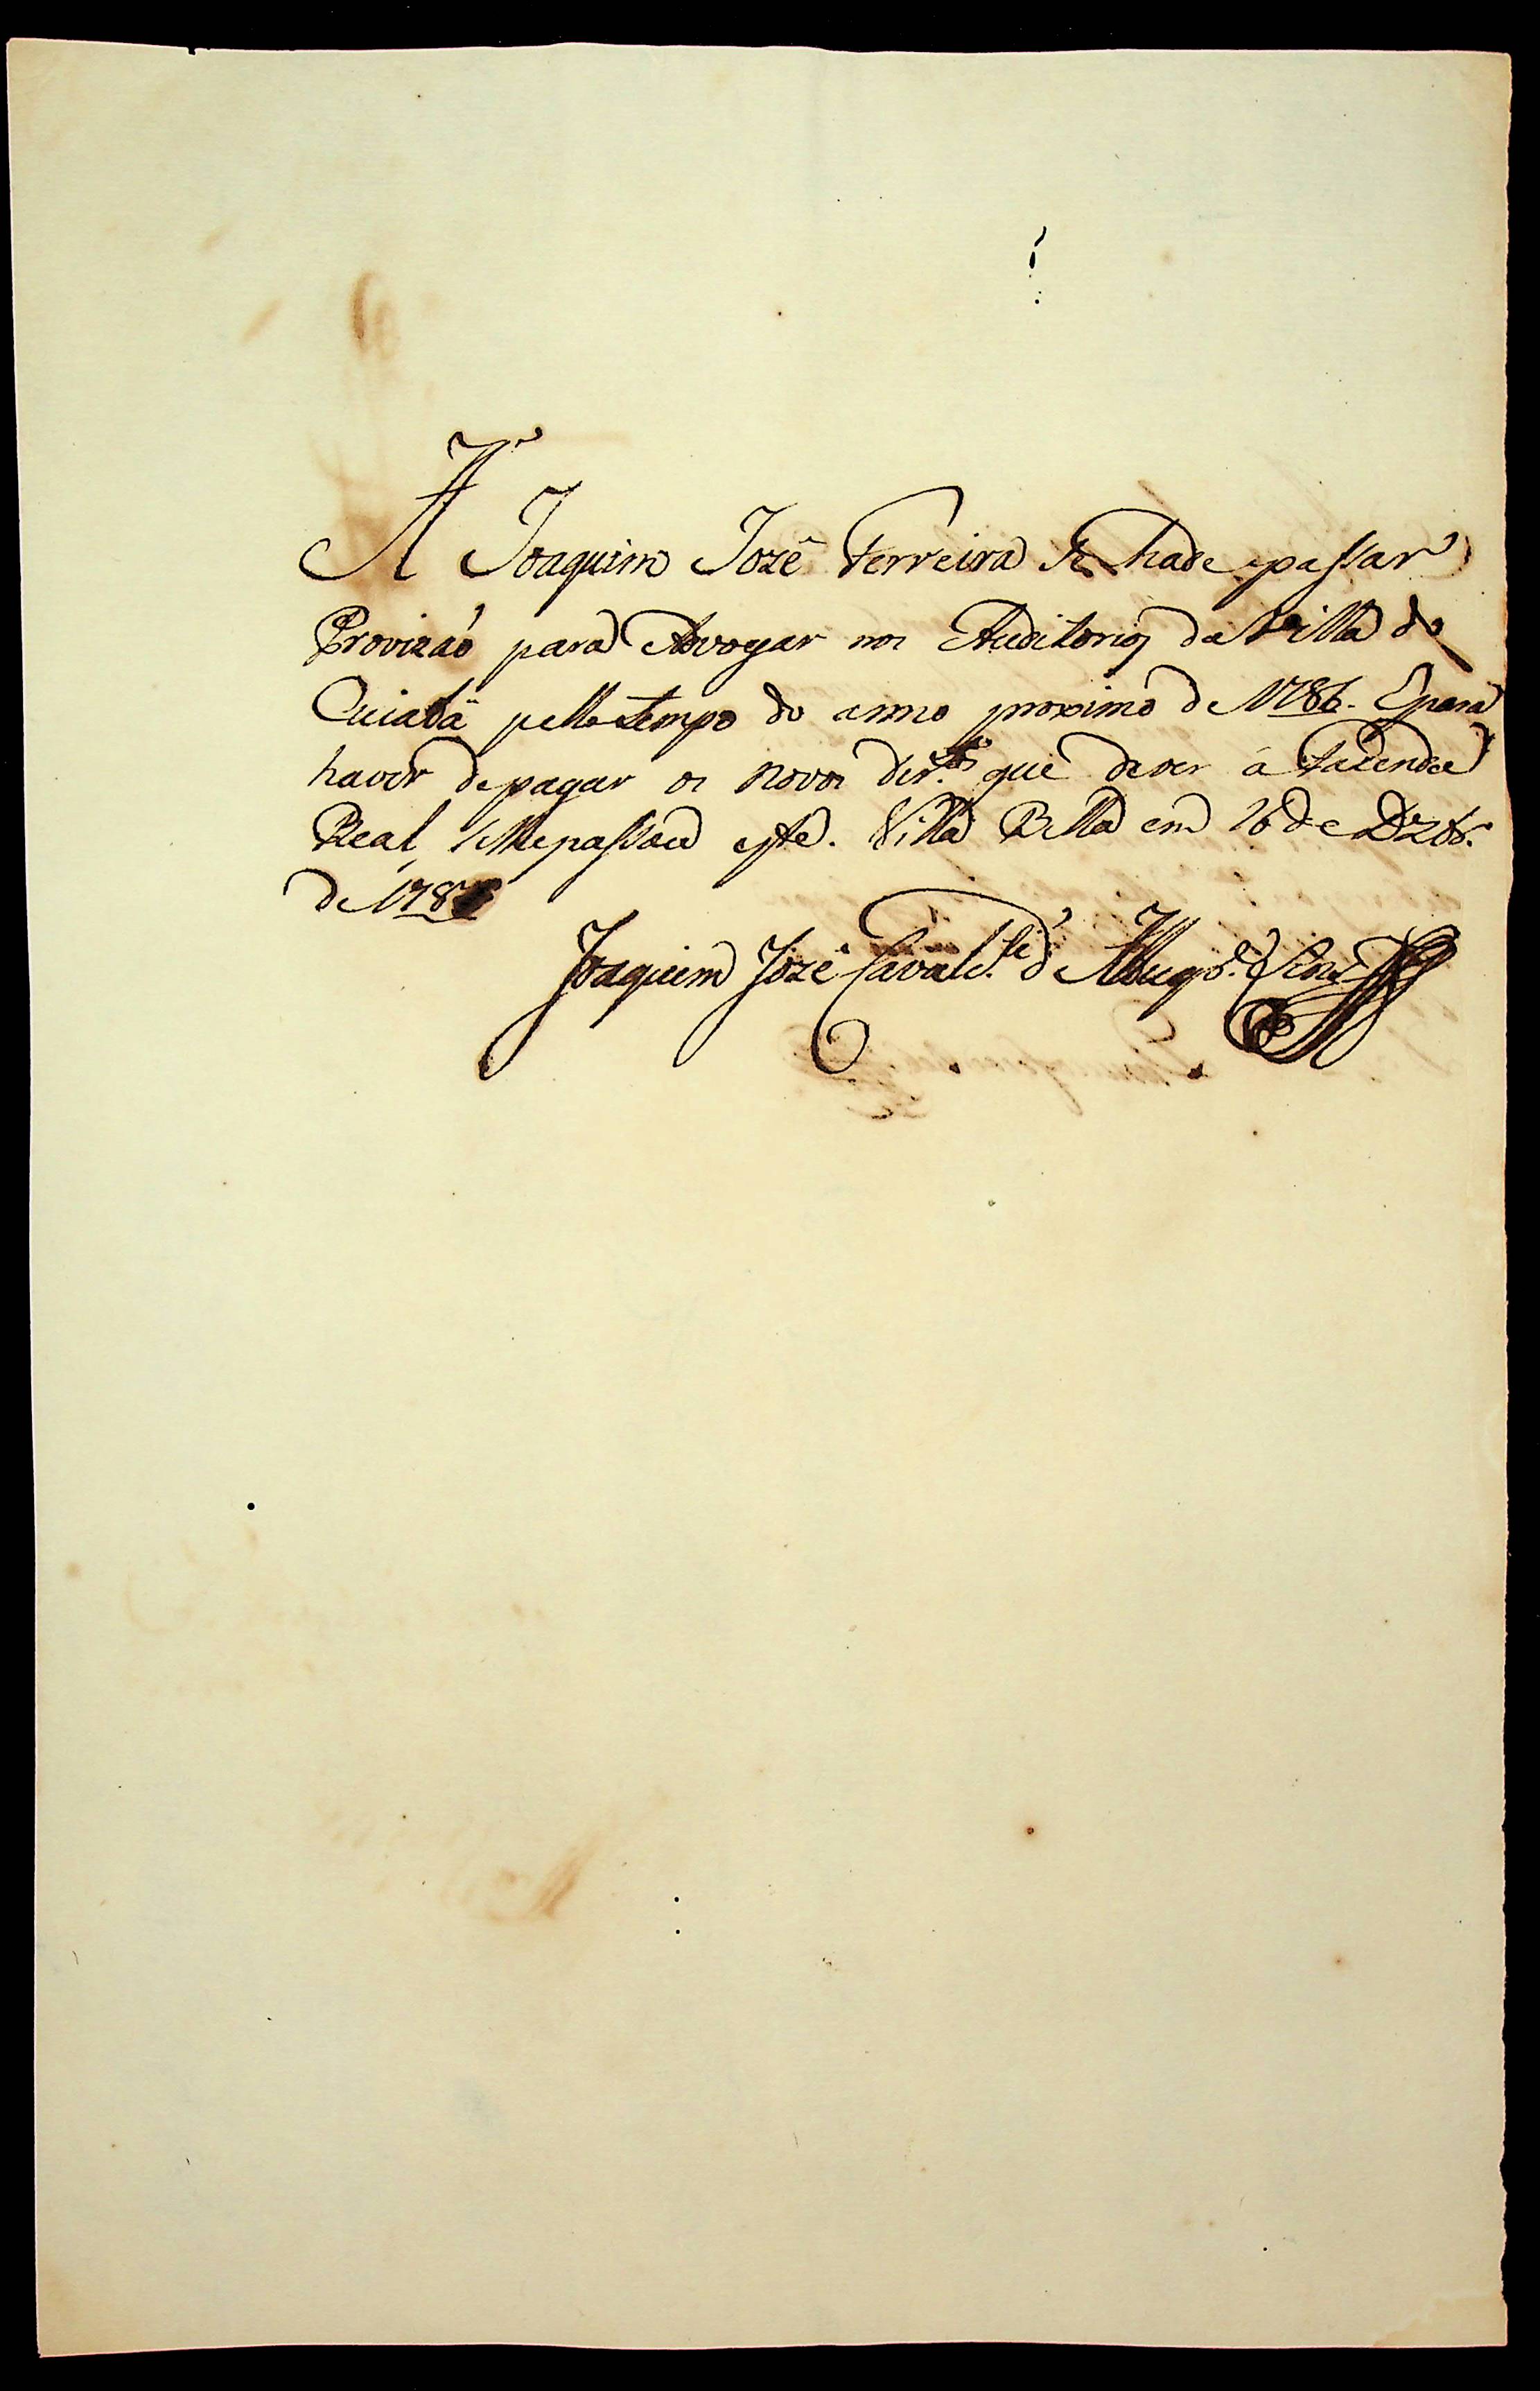 A Joaquim Jozê Ferreira se hade passar
Provizaõ para Advogar nos Auditorios da Villa do
Cuiabá pello tempo do anno proximo de 1786. E para
haver de pagar os novos dir.tos que dever â Fazenda
Real, se lhe passou este. Villa Bella em 16 de Dezbr.
de 178
Joaquim Jozê Cavalc.te d'Albuqr.e Lins